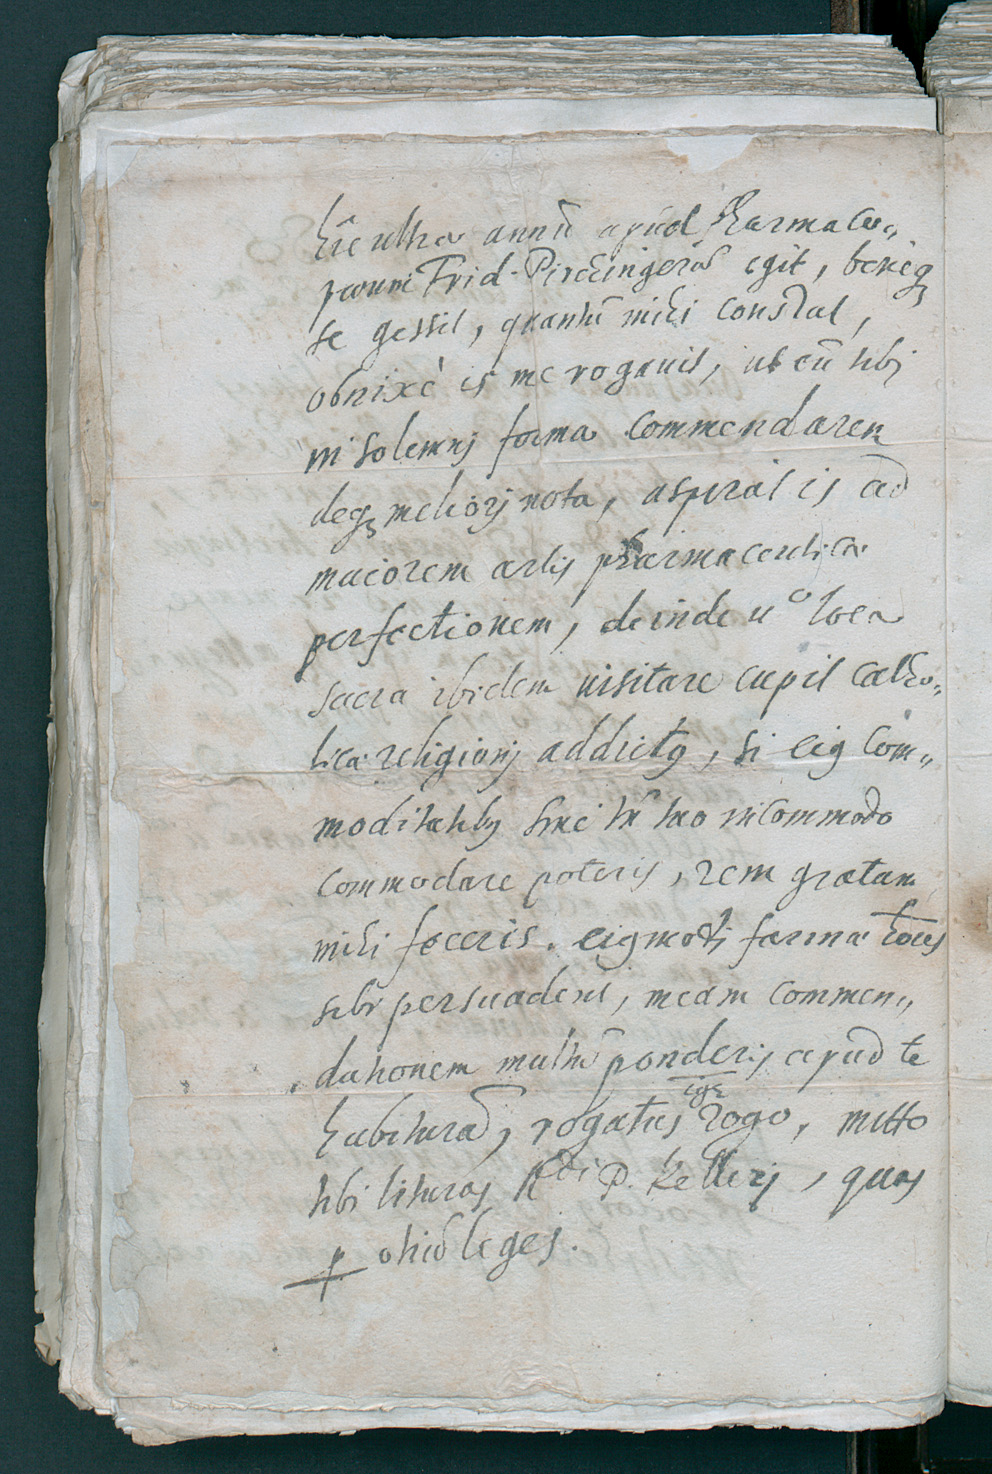 hîc ultra annũ apud Pharmaco„
paeum Frid. Pirckingerũ egit, beneq₃
se gessit, quantũ mihi constat,
obnixè is me rogauit, ut eũ tibj
in solemnj forma commendarem
deq₃ meliorj nota, aspirat is ad
maiorem artis pharmaceuticae
perfectionem, deinde u° loca
sacra ibidem uisitare cupit catho„
licae religionj addictꝰ, si eiꝰ com„
moditatibꝰ sine tñ tuo incommodo
commodare poteris, rem gratam
mihi feceris. eiꝰmodi
sibi persuadens, meam commen„
dationem multũ ponderis apud te
habiturã, rogatus rogo, mitto
tibi literas Rdi P. Kellerj, quas
ꝑ otiũ leges.